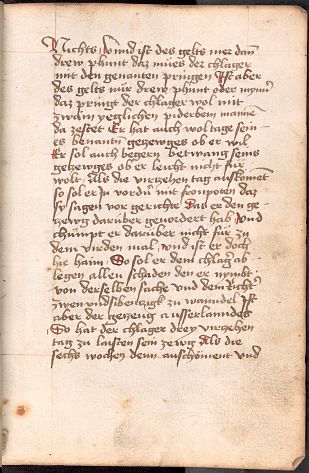 Nichts vnnd ist des gelts mer dan
drew phunt daz mües der chlager
mit den genanten pringen Ist aber
des gelts nür drew phunt oder mynner
daz pringt der chlager wol mit
zwain yeglichen piderben mannen
da zestet Er hat auch wol tage sein
es benantn gezewges ob er wil
Er sol auch begern betwang seins
gezewges ob er leicht nicht für
wolt Als die virzehen tag auskoment
so sol er in vordern mit fronpoten daz
sy sagen vor gerichte Das er den ge
zewg darüber geuordert hab Vnd
chümpt er darüber nicht für zu
dem virden mal vnd ist er doch
hie haim So sol er dem chlager ab
legen allen schaden den er nymbt
von derselben sache vnd dem Richter
zwen vndsibentzigk zu wanndel Ist
aber der gezeug ausserlanndes
So hat der chlager drey virzehen
tag zu laisten sein zewg Als die
sechs wochen denn auschöment vnd